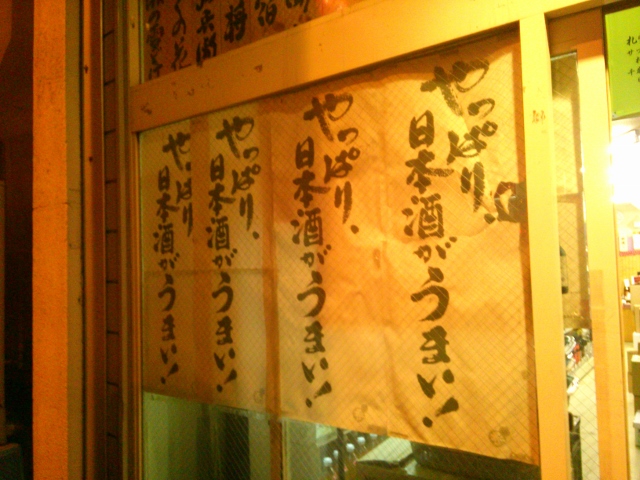 やっぱり、
日本酒がうまい!
やっぱり、
日本酒がうまい!
やっぱり、
日本酒がうまい!
やっぱり
日本酒がうまい!